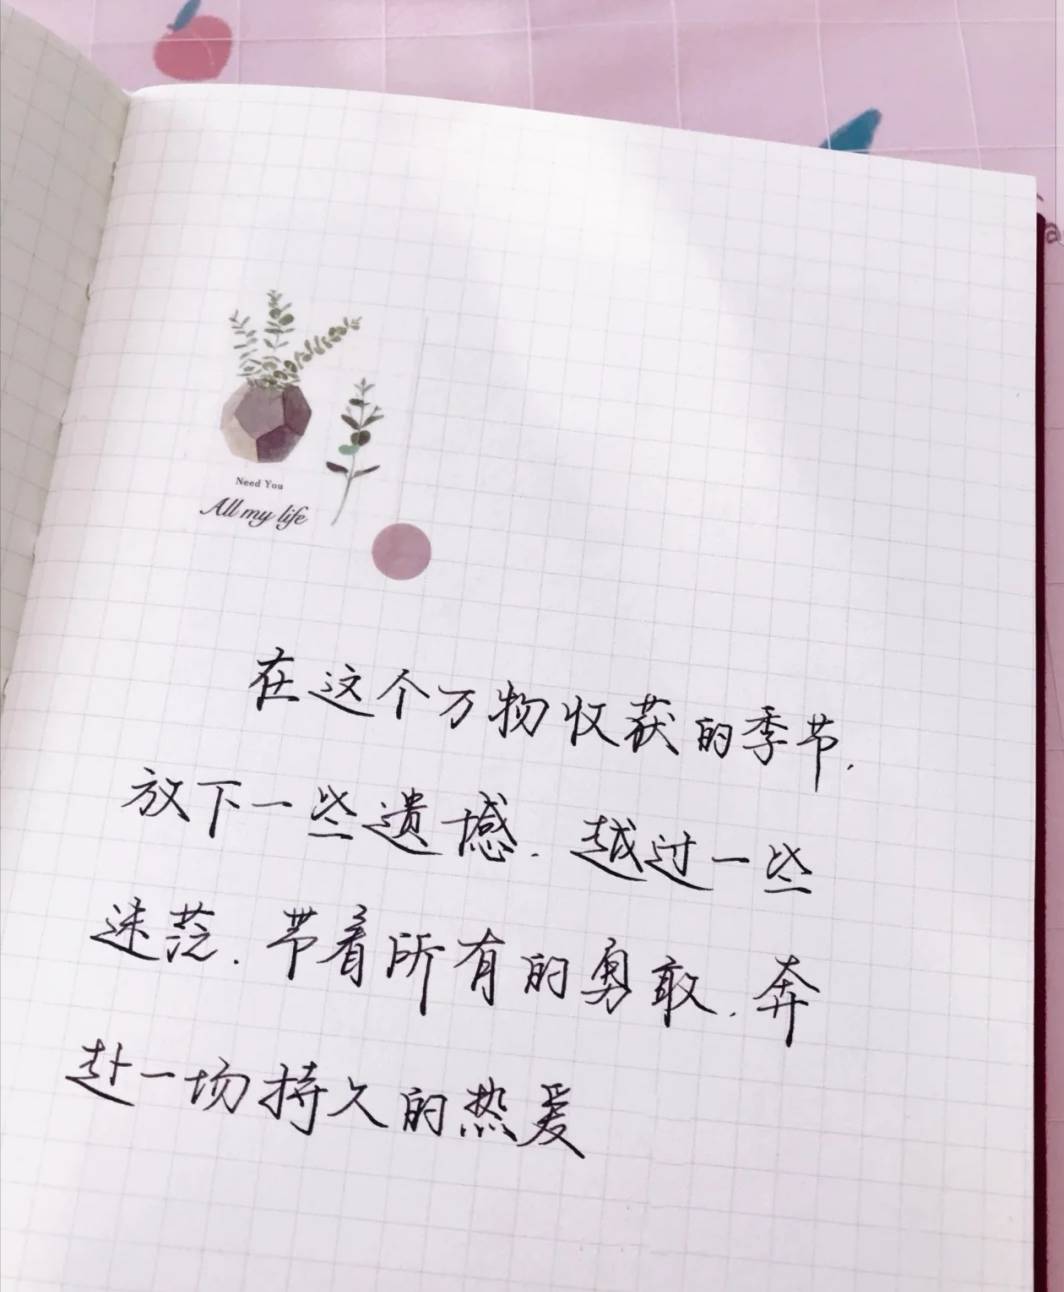 Need You
All my life
在这个万物收获的季节.
放下一些遗憾.越过一些
迷茫.带着所有的勇敢.奔
赴一场持久的热爱